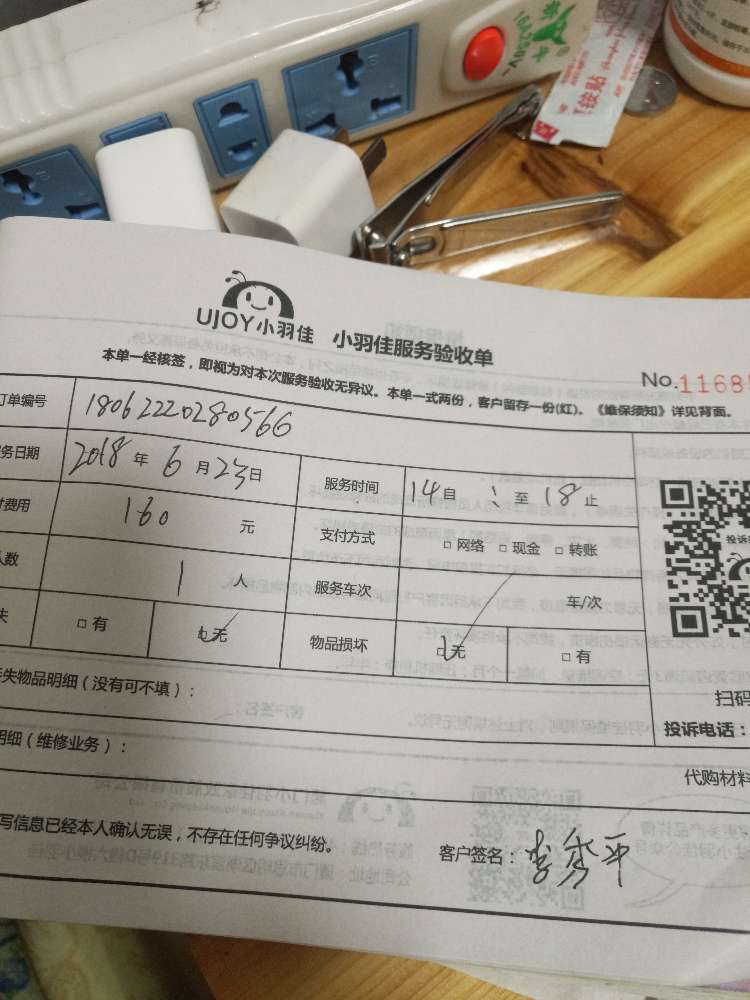 UJOY小羽佳 小羽佳服务验收单
本单一经核签，即视为对本次服务验收无异议。本单一式两份，客户留存一份(红)。《维保须知》详见背面。
No.1168
订单编号 18062220280566
务日期 2018 年 6 月 23 日 服务时间 14 自 : 至 18 止
费用 160 元 支付方式 □ 网络 □ 现金 □ 转账
人数 1 人 服务车次 车/次
失 □ 有 □ 无 物品损坏 □ 无 □ 有
失物品明细（没有可不填）：
明细（维修业务）：
投诉
扫码
投诉电话：
代购材料
写信息已经本人确认无误，不存在任何争议纠纷。
客户签名：李秀平